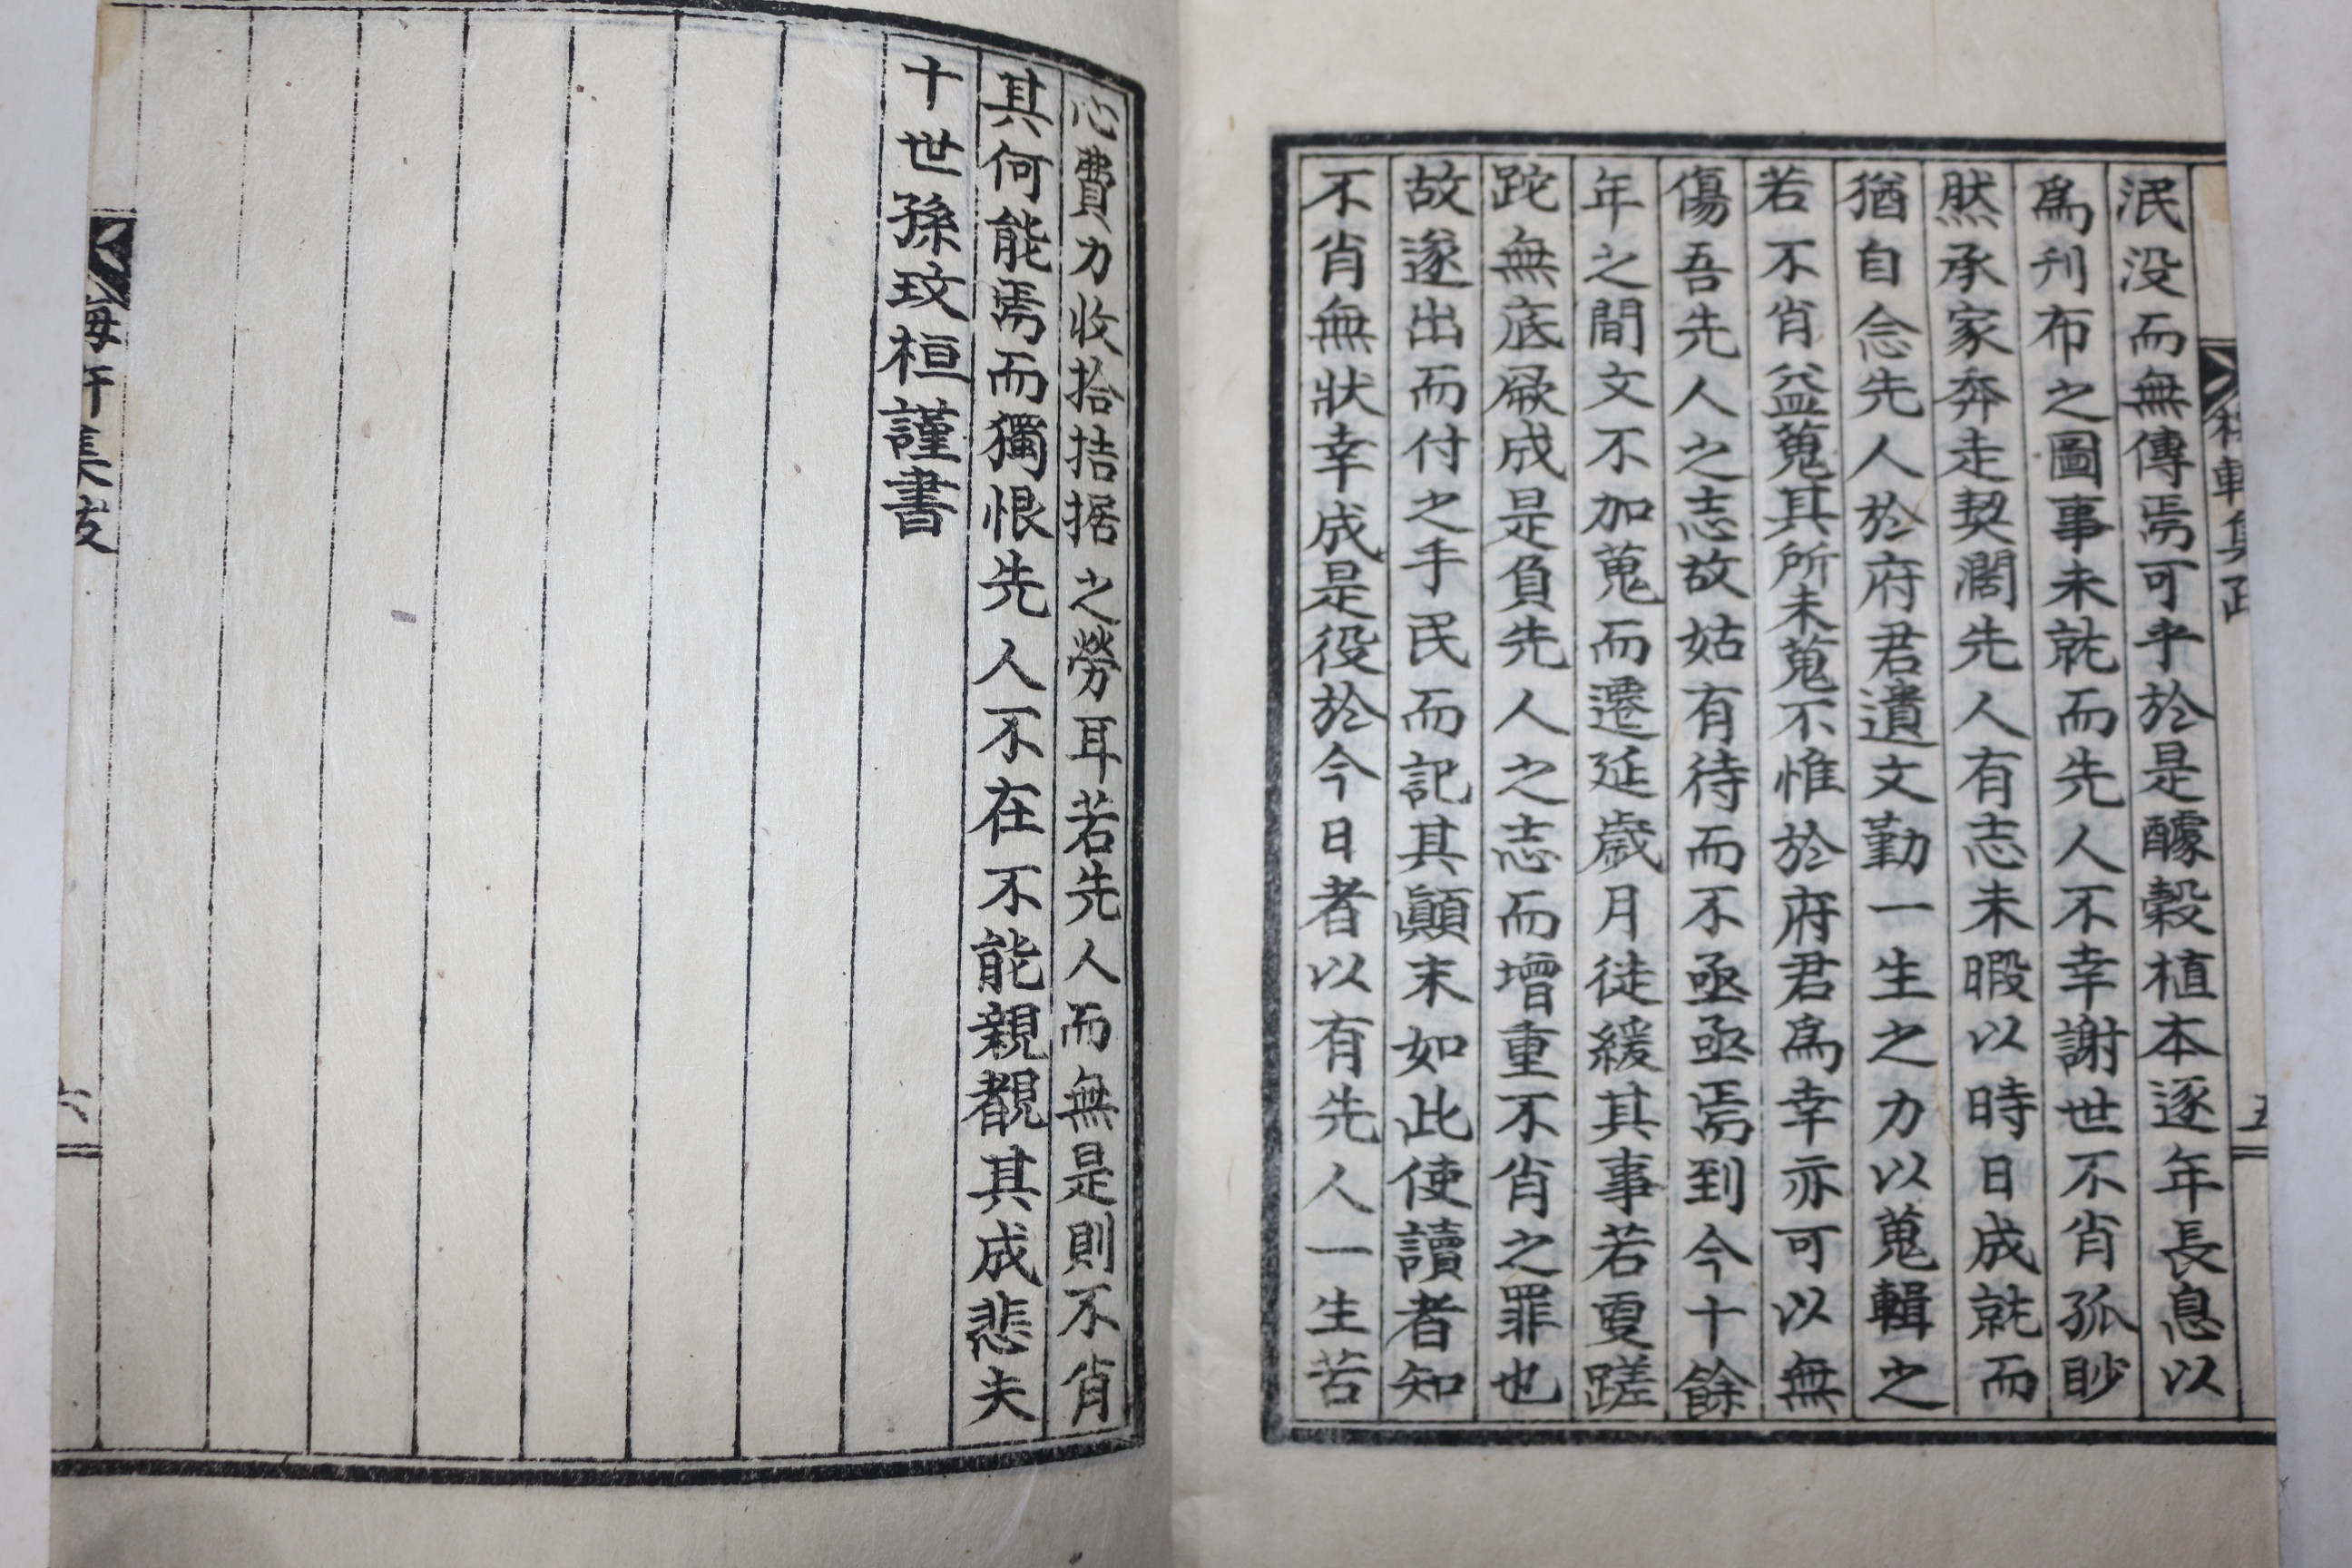 泯没而無傳焉可乎於是醵穀植本逐年長息以
爲刊布之圖事未就而先人不幸謝世不肖孤眇
然承家奔走契濶先人有志未暇以時日成就而
猶自念先人於府君遺文勤一生之力以蒐輯之
若不肖益蒐其所未蒐不惟於府君爲幸亦可以無
傷吾先人之志故姑有待而不亟亟焉到今十餘
年之間文不加蒐而遷延歲月徒緩其事若更蹉
跎無底厥成是負先人之志而增重不肖之罪也
故遂出而付之手民而記其顚末如此使讀者知
不肖無狀幸成是役於今日者以有先人一生苦
心費力收拾拮据之勞耳若先人而無是則不肖
其何能焉而獨恨先人不在不能親覩其成悲夫
十世孫玟桓謹書
集跋
六